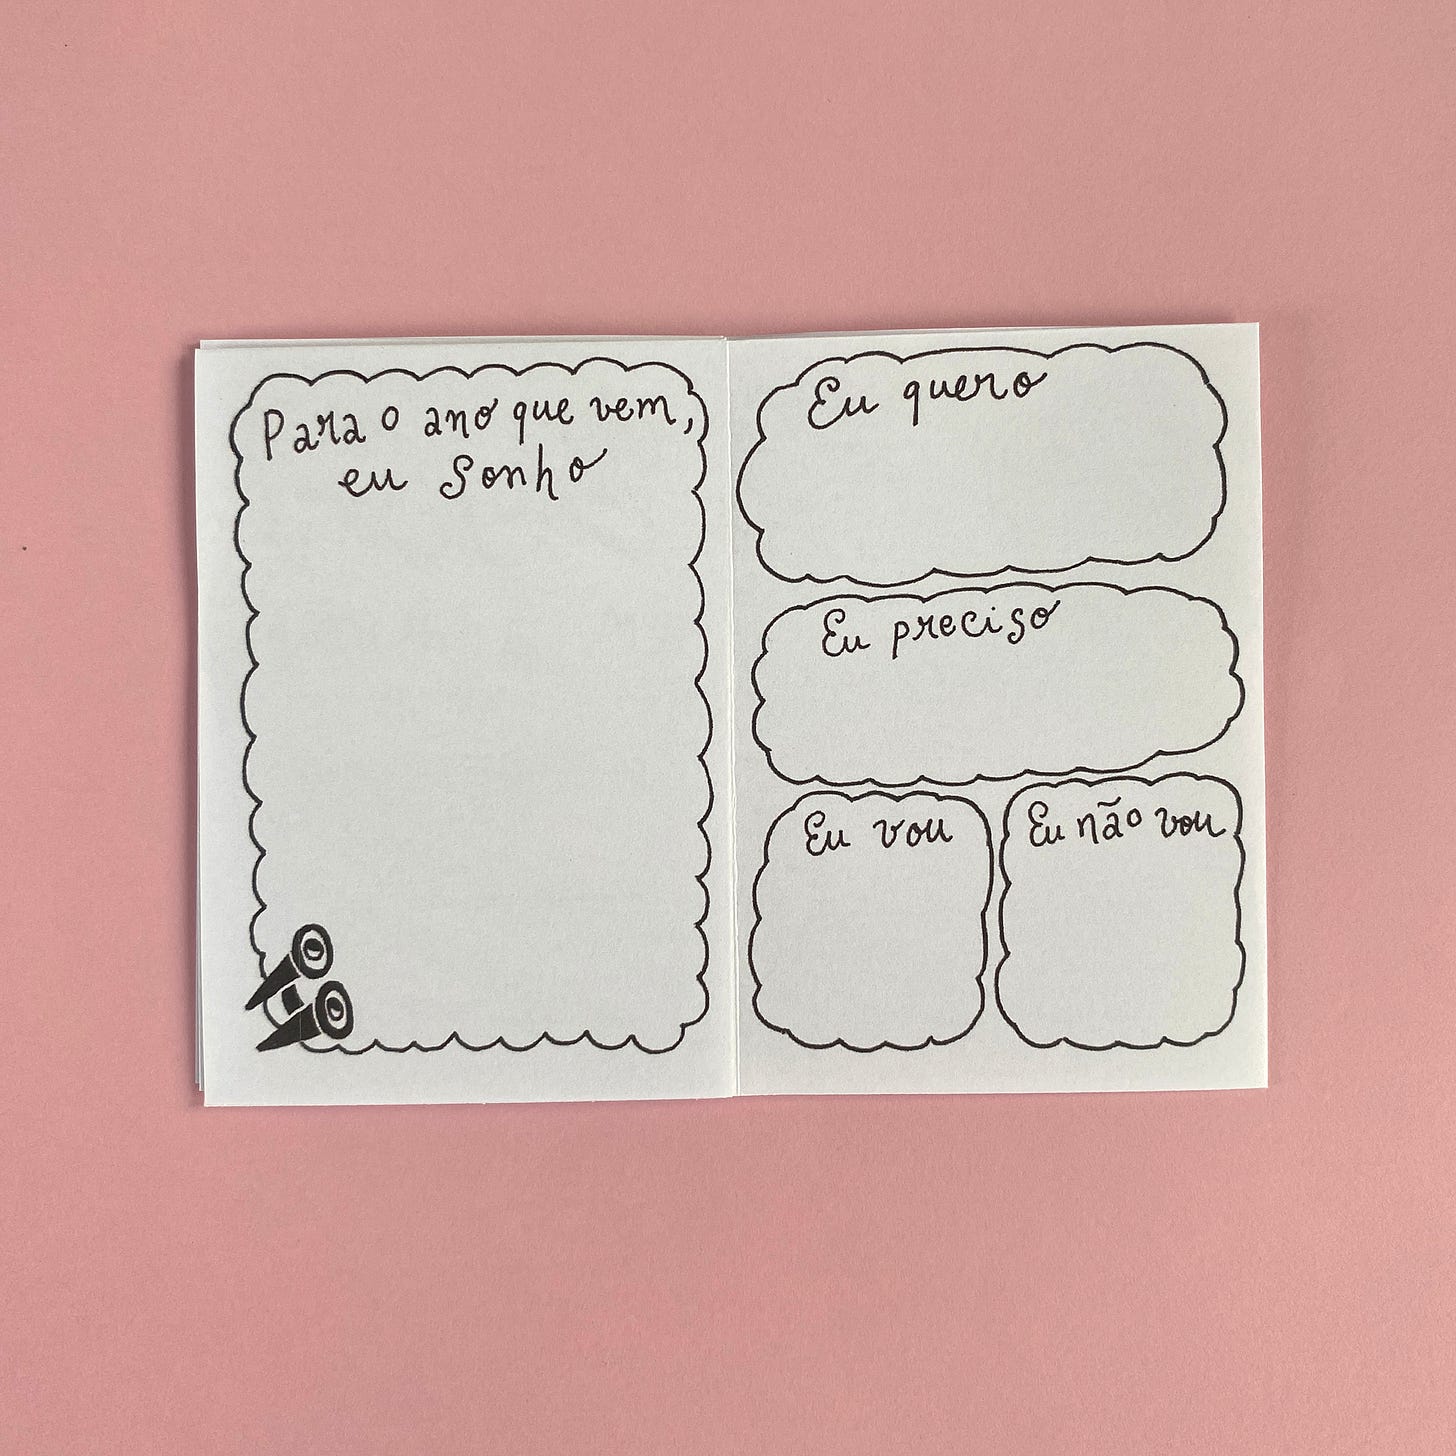 Para o ano que vem,
eu sonho
Eu quero
Eu preciso
Eu vou
Eu não vou